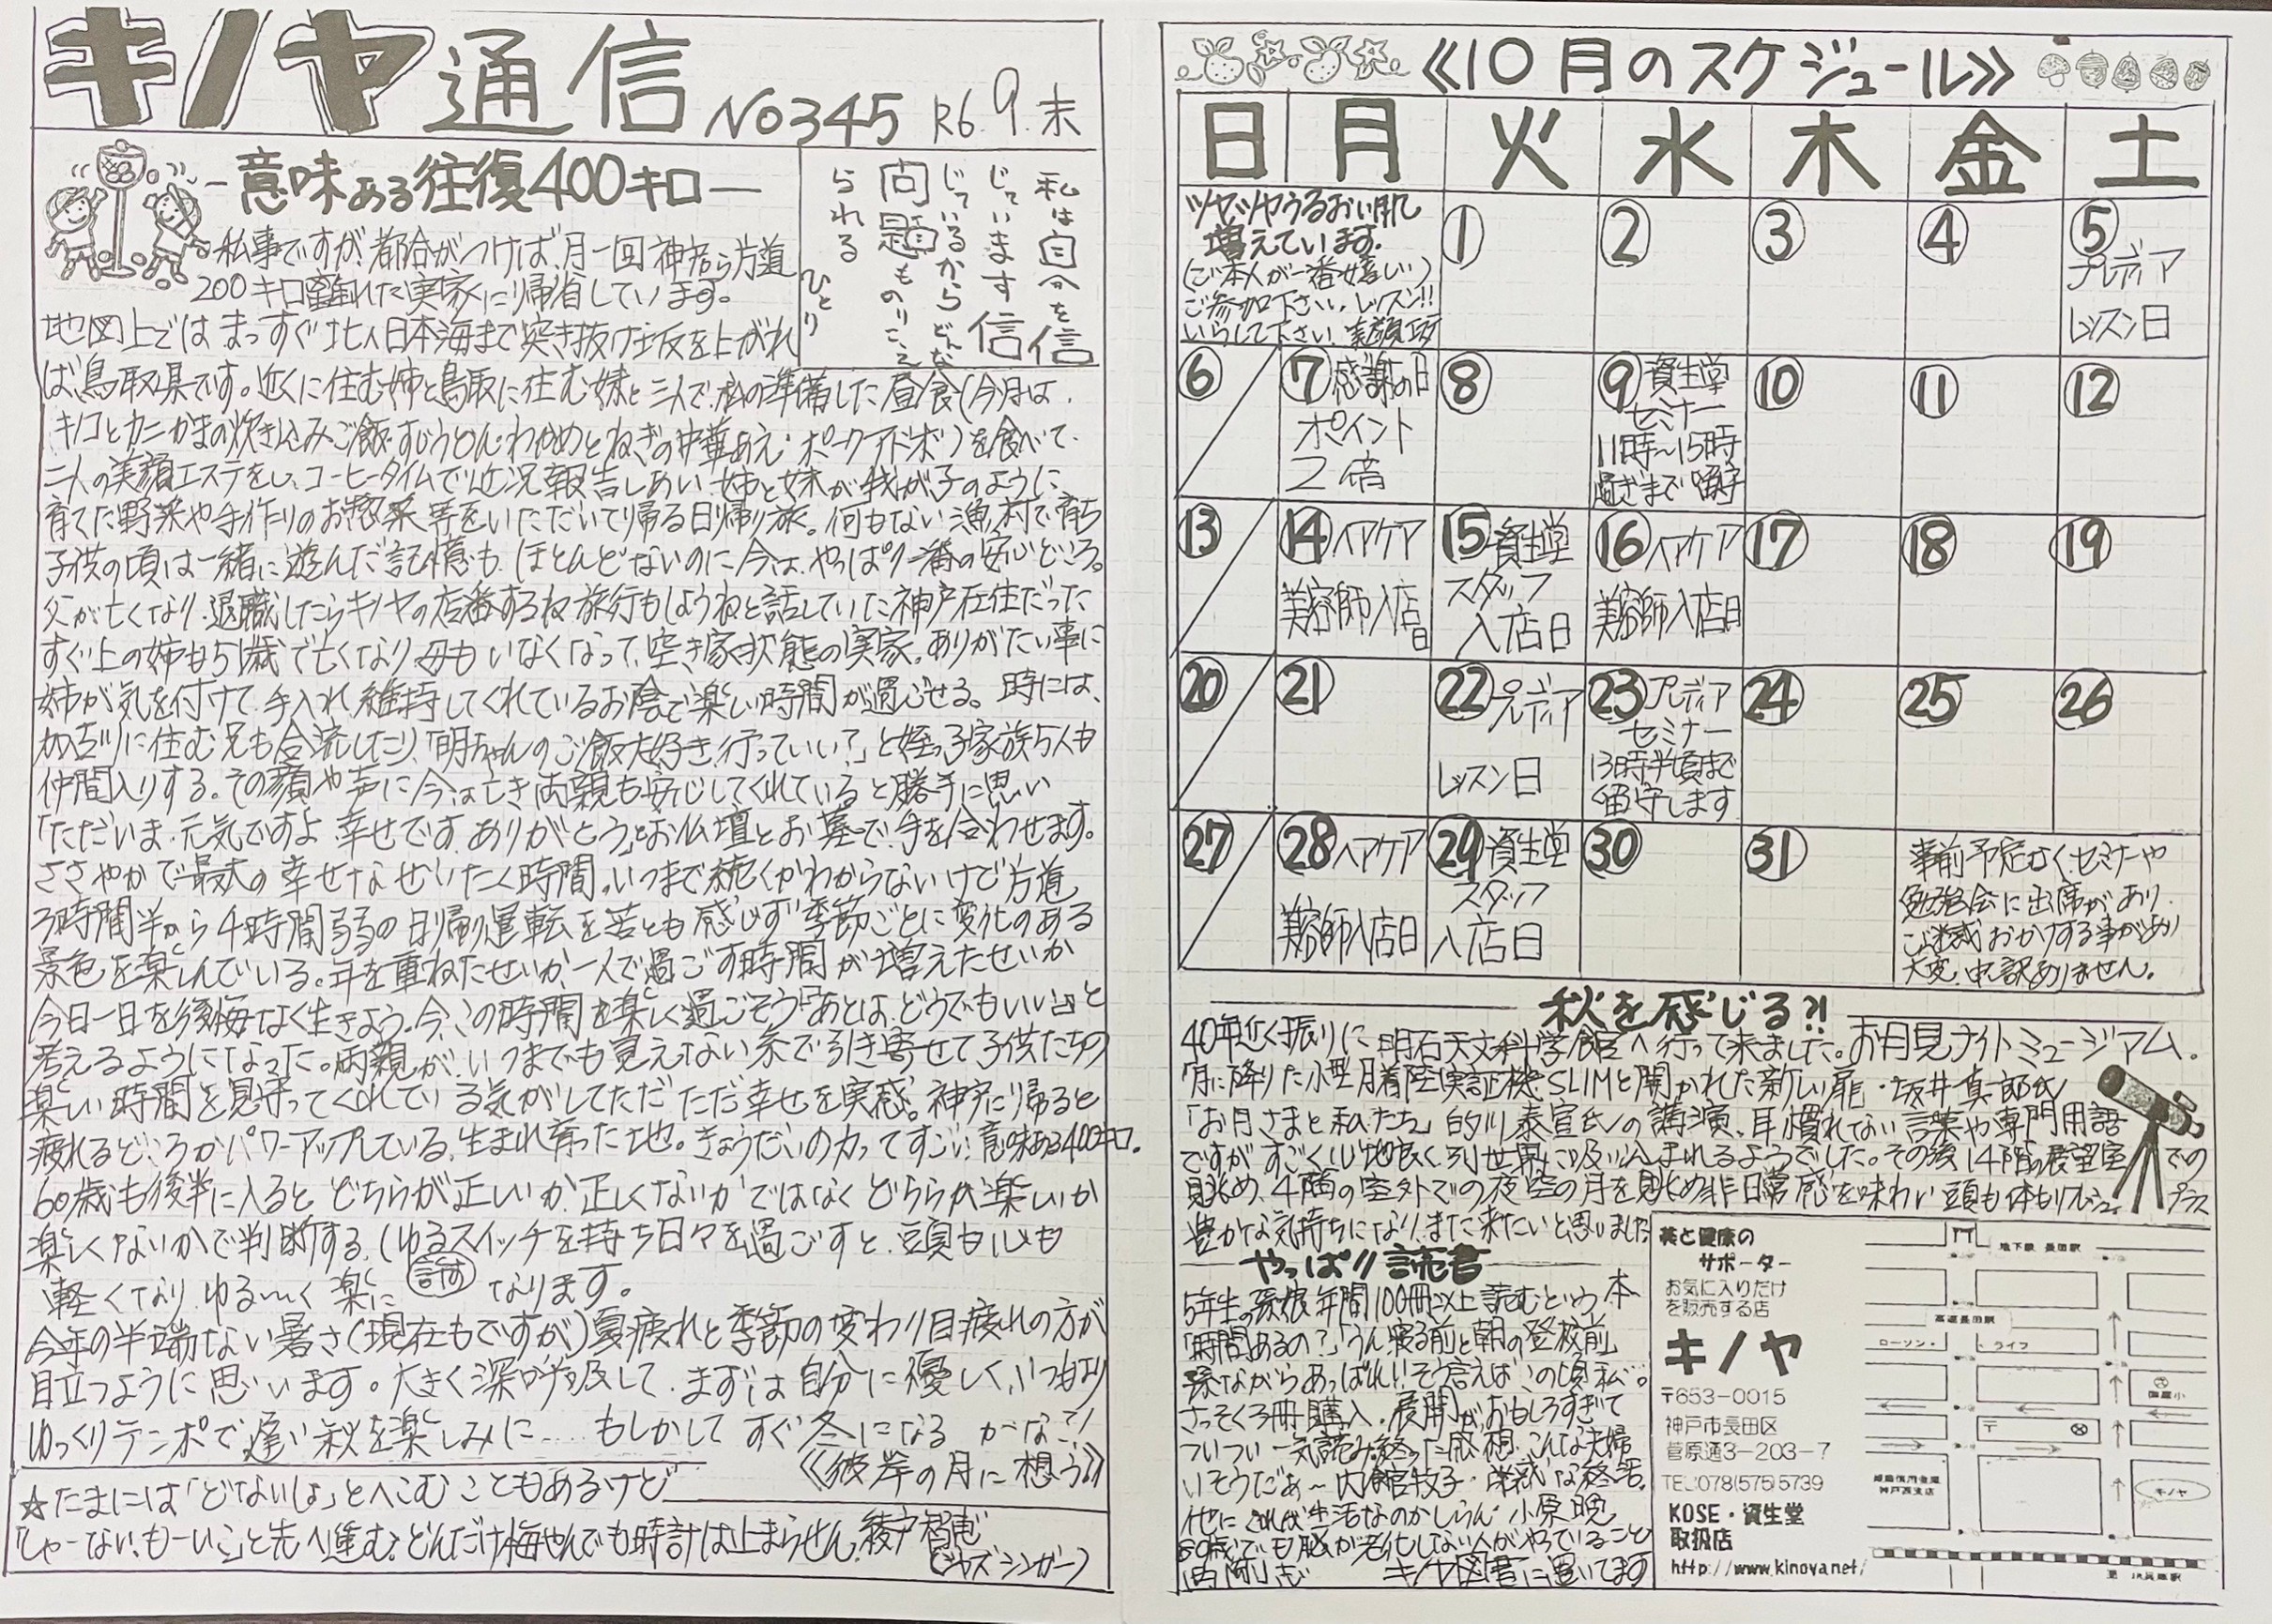 キノヤ通信 No345 R6.9.末
-意味ある往復400キロ-
私は自分を信
じています 信
じているからどんな
問題ものりこえ
られる
ひとり
私事ですが、都合がつけば、月一回神戸から片道
200キロ離れた実家に帰省しています。
地図上では まっすぐ北へ日本海まで突き抜け坂を上がれ
ば鳥取県です。近くに住む姉と鳥取に住む妹と三人で、私の準備した昼食(今月は、
キノコとカニかまの炊き込みご飯・すじうどん・わかめとねぎの中華あえ・ポークアドボ)を食べて、
二人の美顔エステをし、コーヒータイムで近況報告しあい、姉と妹が我が子のように
育てた野菜や手作りのお惣菜等をいただいて帰る日帰り旅。何もない漁村で育ち
子供の頃は一緒に遊んだ記憶も、ほとんどないのに今は、やっぱり一番の安心どころ。
父が亡くなり、退職したらキノヤの店番するね旅行もしようねと話していた神戸在住だった
すぐ上の姉も51歳で亡くなり、母もいなくなって、空き家状態の実家。ありがたい事に
姉が気を付けて、手入れ、維持してくれているお陰で楽しい時間が過ごせる。時には、
加古川に住む兄も合流したり、「明ちゃんのご飯大好き、行っていい?」と姪っ子家族5人も
仲間入りする。その顔や声に今は亡き両親も安心してくれていると勝手に思い
「ただいま、元気ですよ 幸せです、ありがとう」とお仏壇とお墓で、手を合わせます。
ささやかで最大の幸せなぜいたく時間。いつまで続くかわからないけど片道
3時間半から4時間弱の日帰り運転を苦とも感じず季節ごとに変化のある
景色を楽しんでいる。年を重ねたせいか、一人で過ごす時間が増えたせいか
今日一日を後悔なく生きよう。今、この時間を楽しく過ごそう「あとは、どうでもいい」と
考えるようになった。両親が、いつまでも見えない糸で引き寄せて子供たちの
楽しい時間を見守ってくれている気がしてただただ幸せを実感。神戸に帰ると
疲れるどころかパワーアップしている。生まれ育った地。きょうだいの力ってすごい!意味ある400キロ。
60歳も後半に入ると どちらが正しいか、正しくないか ではなく どちらが楽しいか
楽しくないかで判断する、(ゆるスイッチを持ち日々を過ごすと、頭も心も
許す
軽くなり、ゆる〜く 楽に なります。
今年の半端ない暑さ(現在もですが)夏疲れと季節の変わり目疲れの方が
目立つように思います。大きく深呼吸して、まずは自分に優しく、いつもより
ゆっくりテンポで遅い秋を楽しみに……もしかして すぐ冬になる かな?!
《彼岸の月に想う》
☆たまには「どないしょ」とへこむこともあるけど
「しゃーない、もーいこ」と先へ進む?どんだけ悔やんでも時計は止まらせん。綾戸智恵
(ジャズシンガー)
《10月のスケジュール》
日 月 火 水 木 金 土
ツヤツヤうるおい肌
増えています。
(ご本人が一番嬉しい)
ご参加下さい。レッスン!!
いらして下さい。美顔エステ
① ② ③ ④ ⑤
プレディア
レッスン日
⑥ ⑦感謝の日 ⑧ ⑨資生堂 ⑩ ⑪ ⑫
ポイント
2倍
セミナー
11時〜15時
過ぎまで留守
⑬ ⑭ヘアケア ⑮資生堂 ⑯ヘアケア ⑰ ⑱ ⑲
美容師入店日
スタッフ
入店日
美容師入店日
⑳ ㉑ ㉒プレディア ㉓プレディア ㉔ ㉕ ㉖
レッスン日
セミナー
13時半頃まで
留守します
㉗ ㉘ヘアケア ㉙資生堂 ㉚ ㉛
美容師入店日
スタッフ
入店日
事前予定なく、セミナーや
勉強会に出席があり、
ご迷惑おかけする事があり
大変、申し訳ありません。
秋を感じる?!
40年近く振りに明石天文科学館へ行って来ました。お月見ナイトミュージアム。
「月に降りた小型月着陸実証機SLIMと開かれた新しい扉・坂井真一郎氏
「お月さまと私たち」的川泰宣氏の講演、耳慣れない言葉や専門用語
ですが すごく心地良く、別世界に吸い込まれるようでした。その後14階の展望室での
眺め、4階の室外での夜空の月を眺め非日常感を味わい頭も体もリフレッシュ プラス
豊かな気持ちになり、また来たいと思いました
やっぱり読書
5年生の孫娘、年間100冊以上読むという、本
「時間あるの?」「うん寝る前と朝の登校前」
孫ながらあっぱれ!!そう言えばこの頃私。
さっそく3冊購入。展開が、おもしろすぎて
ついつい一気読み、終った感想、こんな夫婦
いそうだぁ〜 内館牧子・迷惑な終活。
他に これが生活なのかしらん 小原晩
80歳でも脳が老化しない人がやっていること
西剛志 キノヤ図書に置いてます
美と健康の
サポーター
お気に入りだけ
を販売する店
キノヤ
〒653-0015
神戸市長田区
菅原通3-203-7
TEL078(575)5739
KOSE・資生堂
取扱店
http://www.kinoya.net/
地下鉄 長田駅
高速長田駅
ローソン・
・ライフ
〒
キノヤ
至 JR兵庫駅